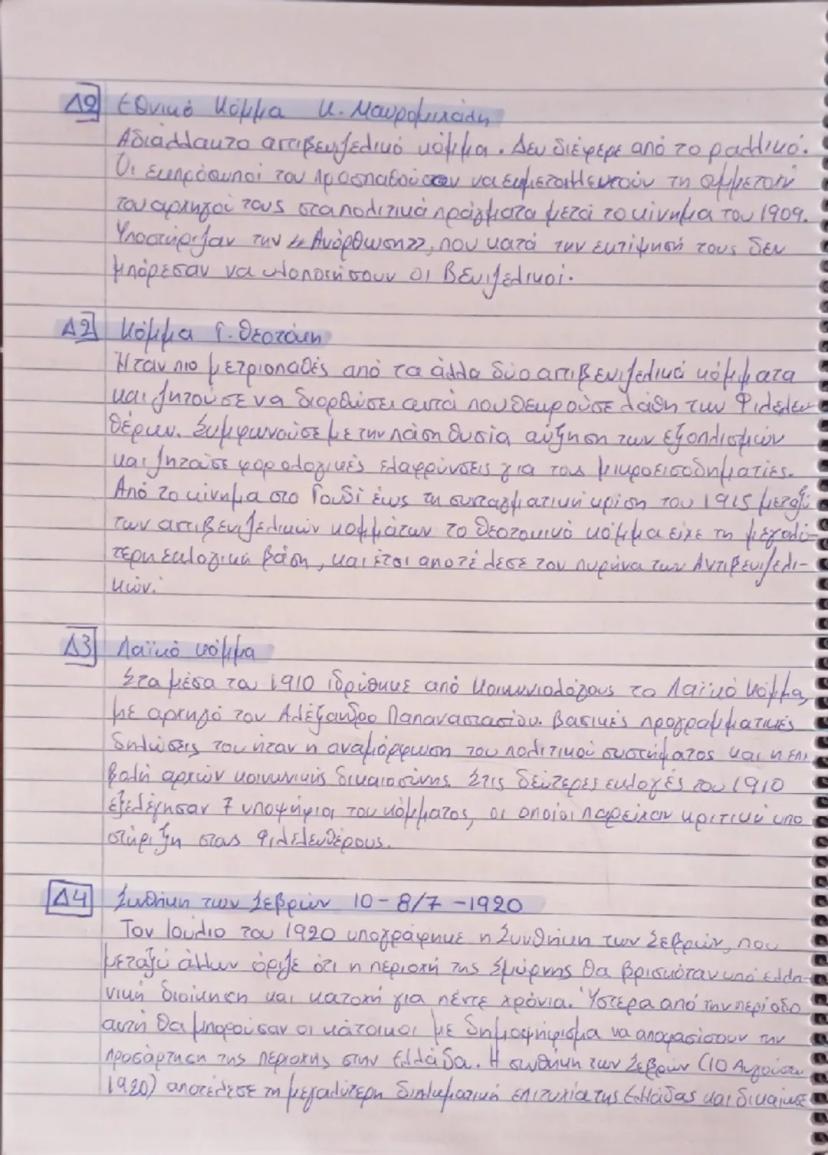 Δ2 Εθνικό Κόμμα Κ. Μαυρομιχάλη
Αδιάλλακτο αντιβενιζελικό κόμμα. Δεν διέφερε από το ραλλικό.
Οι εκπρόσωποί του προσπαθούσαν να εκμεταλλευτούν τη συμμετοχή
του αρχηγού τους στα πολιτικά πράγματα μετά το κίνημα του 1909.
Υποστήριζαν την «Ανόρθωση», που κατά την εκτίμησή τους δεν
μπόρεσαν να υλοποιήσουν οι Βενιζελικοί.
Δ2 Κόμμα Γ. Θεοτόκη
Ήταν πιο μετριοπαθές από τα άλλα δύο αντιβενιζελικά κόμματα
και ζητούσε να διορθώσει αυτά που θεωρούσε λάθη των Φιλελευ-
θέρων. Συμφωνούσε με την πάση θυσία αύξηση των εξοπλισμών
και ζητούσε φορολογικές ελαφρύνσεις για τους μικροεισοδηματίες.
Από το κίνημα στο Γουδί έως τη συνταγματική κρίση του 1915 μεταξύ
των αντιβενιζελικών κομμάτων το θεοτοκικό κόμμα είχε τη μεγαλύ-
τερη εκλογική βάση, και έτσι αποτέλεσε τον πυρήνα των Αντιβενιζελι-
κών.
Δ3 Λαϊκό κόμμα
Στα μέσα του 1910 ιδρύθηκε από Κοινωνιολόγους το Λαϊκό Κόμμα,
με αρχηγό τον Αλέξανδρο Παπαναστασίου. Βασικές προγραμματικές
δηλώσεις του ήταν η αναμόρφωση του πολιτικού συστήματος και η επι
βολή αρχών κοινωνικής δικαιοσύνης. Στις δεύτερες εκλογές του 1910
εξελέγησαν 7 υποψήφιοι του κόμματος, οι οποίοι παρείχαν κριτική υπο
στήριξη στους Φιλελευθέρους.
Δ4 Συνθήκη των Σεβρών 10-8/7-1920
Τον Ιούλιο του 1920 υπογράφηκε η Συνθήκη των Σεβρών, που
μεταξύ άλλων όριζε ότι η περιοχή της Σμύρνης θα βρισκόταν υπό ελλη-
νική διοίκηση και κατοχή για πέντε χρόνια. Ύστερα από την περίοδο
αυτή θα μπορούσαν οι κάτοικοι με δημοψήφισμα να αποφασίσουν την
προσάρτηση της περιοχής στην Ελλάδα. Η συνθήκη των Σεβρών (10 Αυγούστου
1920) αποτέλεσε τη μεγαλύτερη διπλωματική επιτυχία της Ελλάδας και δικαίωσε